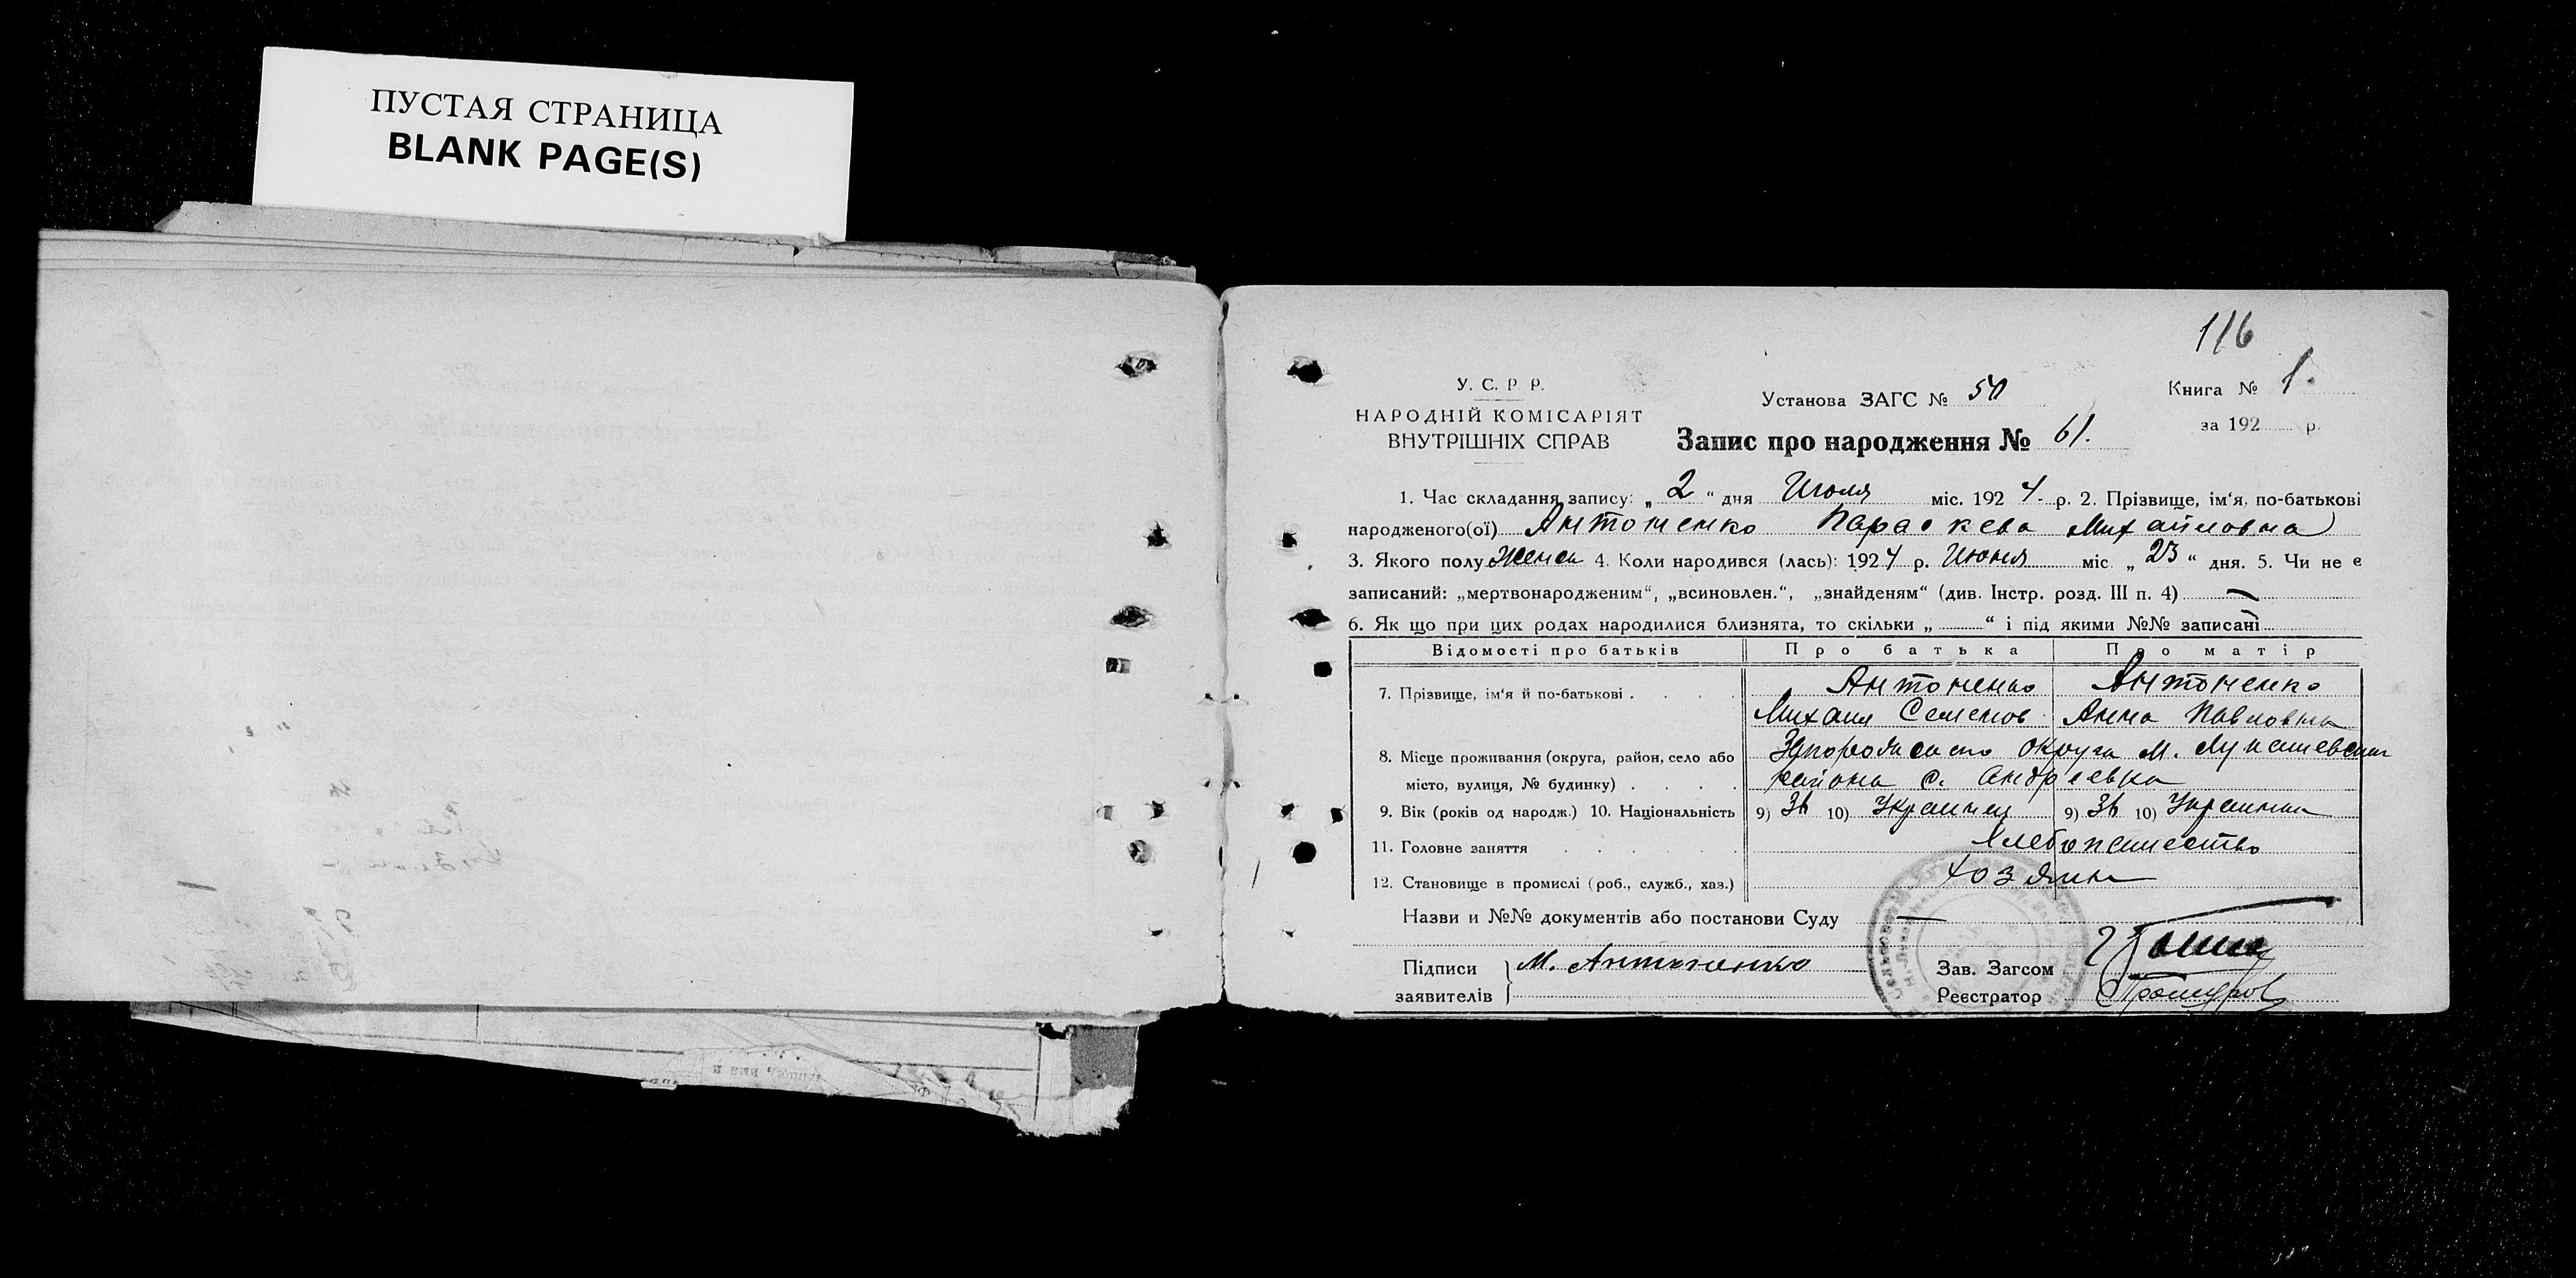 ПУСТАЯ СТРАНИЦА
BLANK PAGE(S)
116
У. С. Р Р.
НАРОДНІЙ КОМІСАРІЯТ
ВНУТРІШНІХ СПРАВ
Установа ЗАГС № 50
Запис про народження № 61.
Книга № 1.
за 192 р.
1. Час складання запису: „ 2 “ дня Июля міс. 192 4 р. 2. Прізвище, ім‘я, по-батькові
народженого(ої) Антоненко Параскева Михайловна
3. Якого полу Женск 4. Коли народився (лась): 1924 р. Июня міс „ 23 “ дня. 5. Чи не є
записаний: „мертвонародженим“, „всиновлен.“, „знайденям“ (див. Інстр. розд. III п. 4) —
6. Як що при цих родах народилися близнята, то скільки „ “ і під якими №№ записані
Відомості про батьків Про батька Про матір
7. Прізвище, ім‘я й по-батькові . . . . Антоненко Антоненко
Михаил Семенов Анна Павловна
8. Місце проживання (округа, район, село або Запорожского округа М.
місто, вулиця, № будинку) . . . . района с. Андреевка
9. Вік (років од народж.) 10. Національність 9) 36 10) Украинец 9) 36 10) Украинка
11. Головне заняття . . . . . Хлебопашество
12. Становище в промислі (роб., служб., хаз.) Хозяин
Назви и №№ документів або постанови Суду —
Підписи М. Антоненко
заявителів
Зав. Загсом
Реєстратор